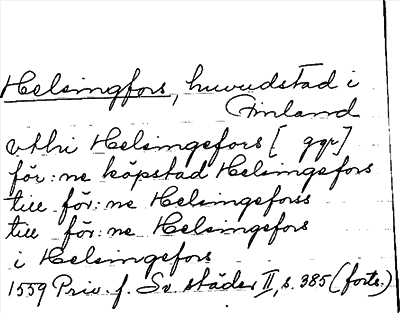 Helsingfors, huvudstad i
Finland
vthi Helsingefors [ ggr]
för:ne köpstad Helsingefors
till för:ne Helsingeforss
till för:ne Helsingefors
i Helsingefors
1559 Priv. f. Sv städer II, s. 385 (forts.)